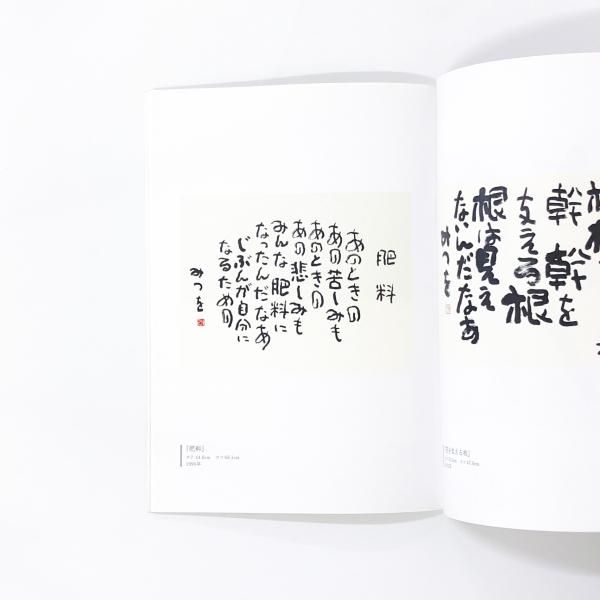 肥料
あのときの
あの苦しみも
あのときの
あの悲しみも
みんな肥料に
なったんだなあ
じぶんが自分に
なるための
みつを
「肥料」
1990年
幹
幹を
支える根
根は見え
ないんだなあ
みつを